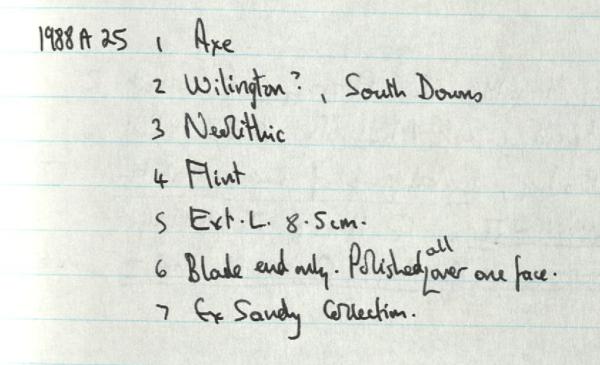 1988 A 25 1 Axe
2 Wilington?, South Downs
3 Neolithic
4 Flint
5 Ext. L. 8.5cm.
6 Blade end only. Polished all over one face.
7 Ex Sandy Collection.